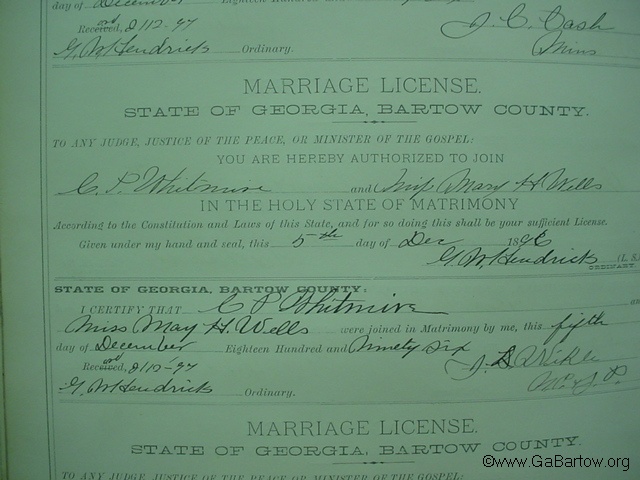 day of December Eighteen Hundred and
Received, 2/12-97 J. C. Cash
G. W. Hendricks Ordinary. Mins
MARRIAGE LICENSE.
STATE OF GEORGIA, BARTOW COUNTY.
TO ANY JUDGE, JUSTICE OF THE PEACE, OR MINISTER OF THE GOSPEL:
YOU ARE HEREBY AUTHORIZED TO JOIN
C. P. Whitmire and Miss Mary H Wells
IN THE HOLY STATE OF MATRIMONY
According to the Constitution and Laws of this State, and for so doing this shall be your sufficient License.
Given under my hand and seal, this 5th day of Dec 1896
G. W. Hendricks (L. S.)
ORDINARY.
STATE OF GEORGIA, BARTOW COUNTY:
I CERTIFY THAT C P Whitmire
Miss May H. Wells were joined in Matrimony by me, this fifth
day of December Eighteen Hundred and Ninety six
Received, 2/10-97
G. W. Hendricks Ordinary.
MARRIAGE LICENSE.
STATE OF GEORGIA, BARTOW COUNTY.
TO ANY JUDGE, JUSTICE OF THE PEACE OR MINISTER OF THE GOSPEL:
©www.GaBartow.org